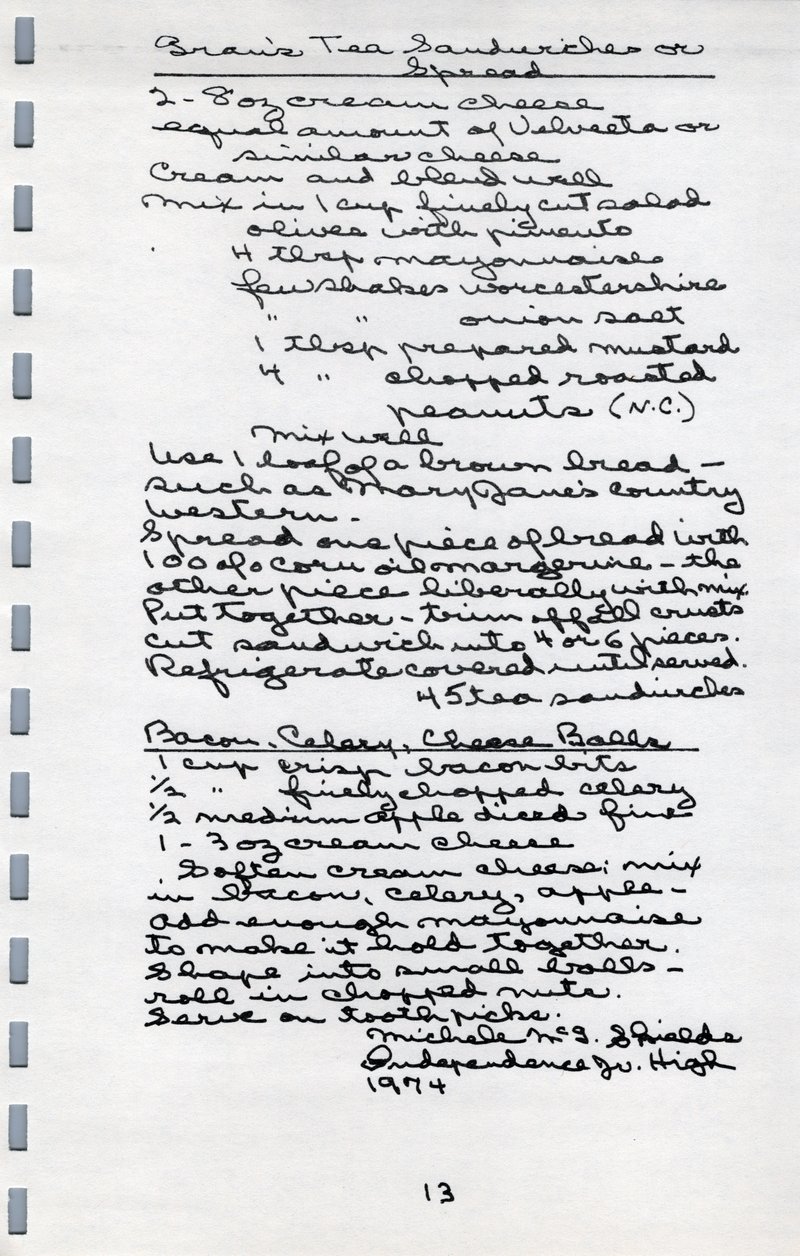 Gran's Tea Sandwiches or
Spread
2 - 8 oz cream cheese
equal amount of Velveeta or
similar cheese
Cream and blend well
Mix in 1 cup finely cut salad
olives with pimento
4 tbsp mayonnaise
few shakes worcestershire
" " onion salt
1 tbsp prepared mustard
4 " chopped roasted
peanuts (N.C.)
Mix well
Use 1 loaf of a brown bread -
such as Mary Jane's Country
Western.
Spread one piece of bread with
100% corn oil margerine - the
other piece liberally with mix.
Put together - trim off all crusts
cut sandwich into 4 or 6 pieces.
Refrigerate covered until served.
45 tea sandwiches
Bacon, Celery, Cheese Balls
1 cup crisp bacon bits
1/2 " finely chopped celery
1/2 medium apple diced fine
1 - 3 oz cream cheese
Soften cream cheese; mix
in bacon, celery, apple -
add enough mayonnaise
to make it hold together.
Shape into small balls -
roll in chopped nuts.
Serve on toothpicks.
Michele McG. Shields
Independence Jr. High
1974
13